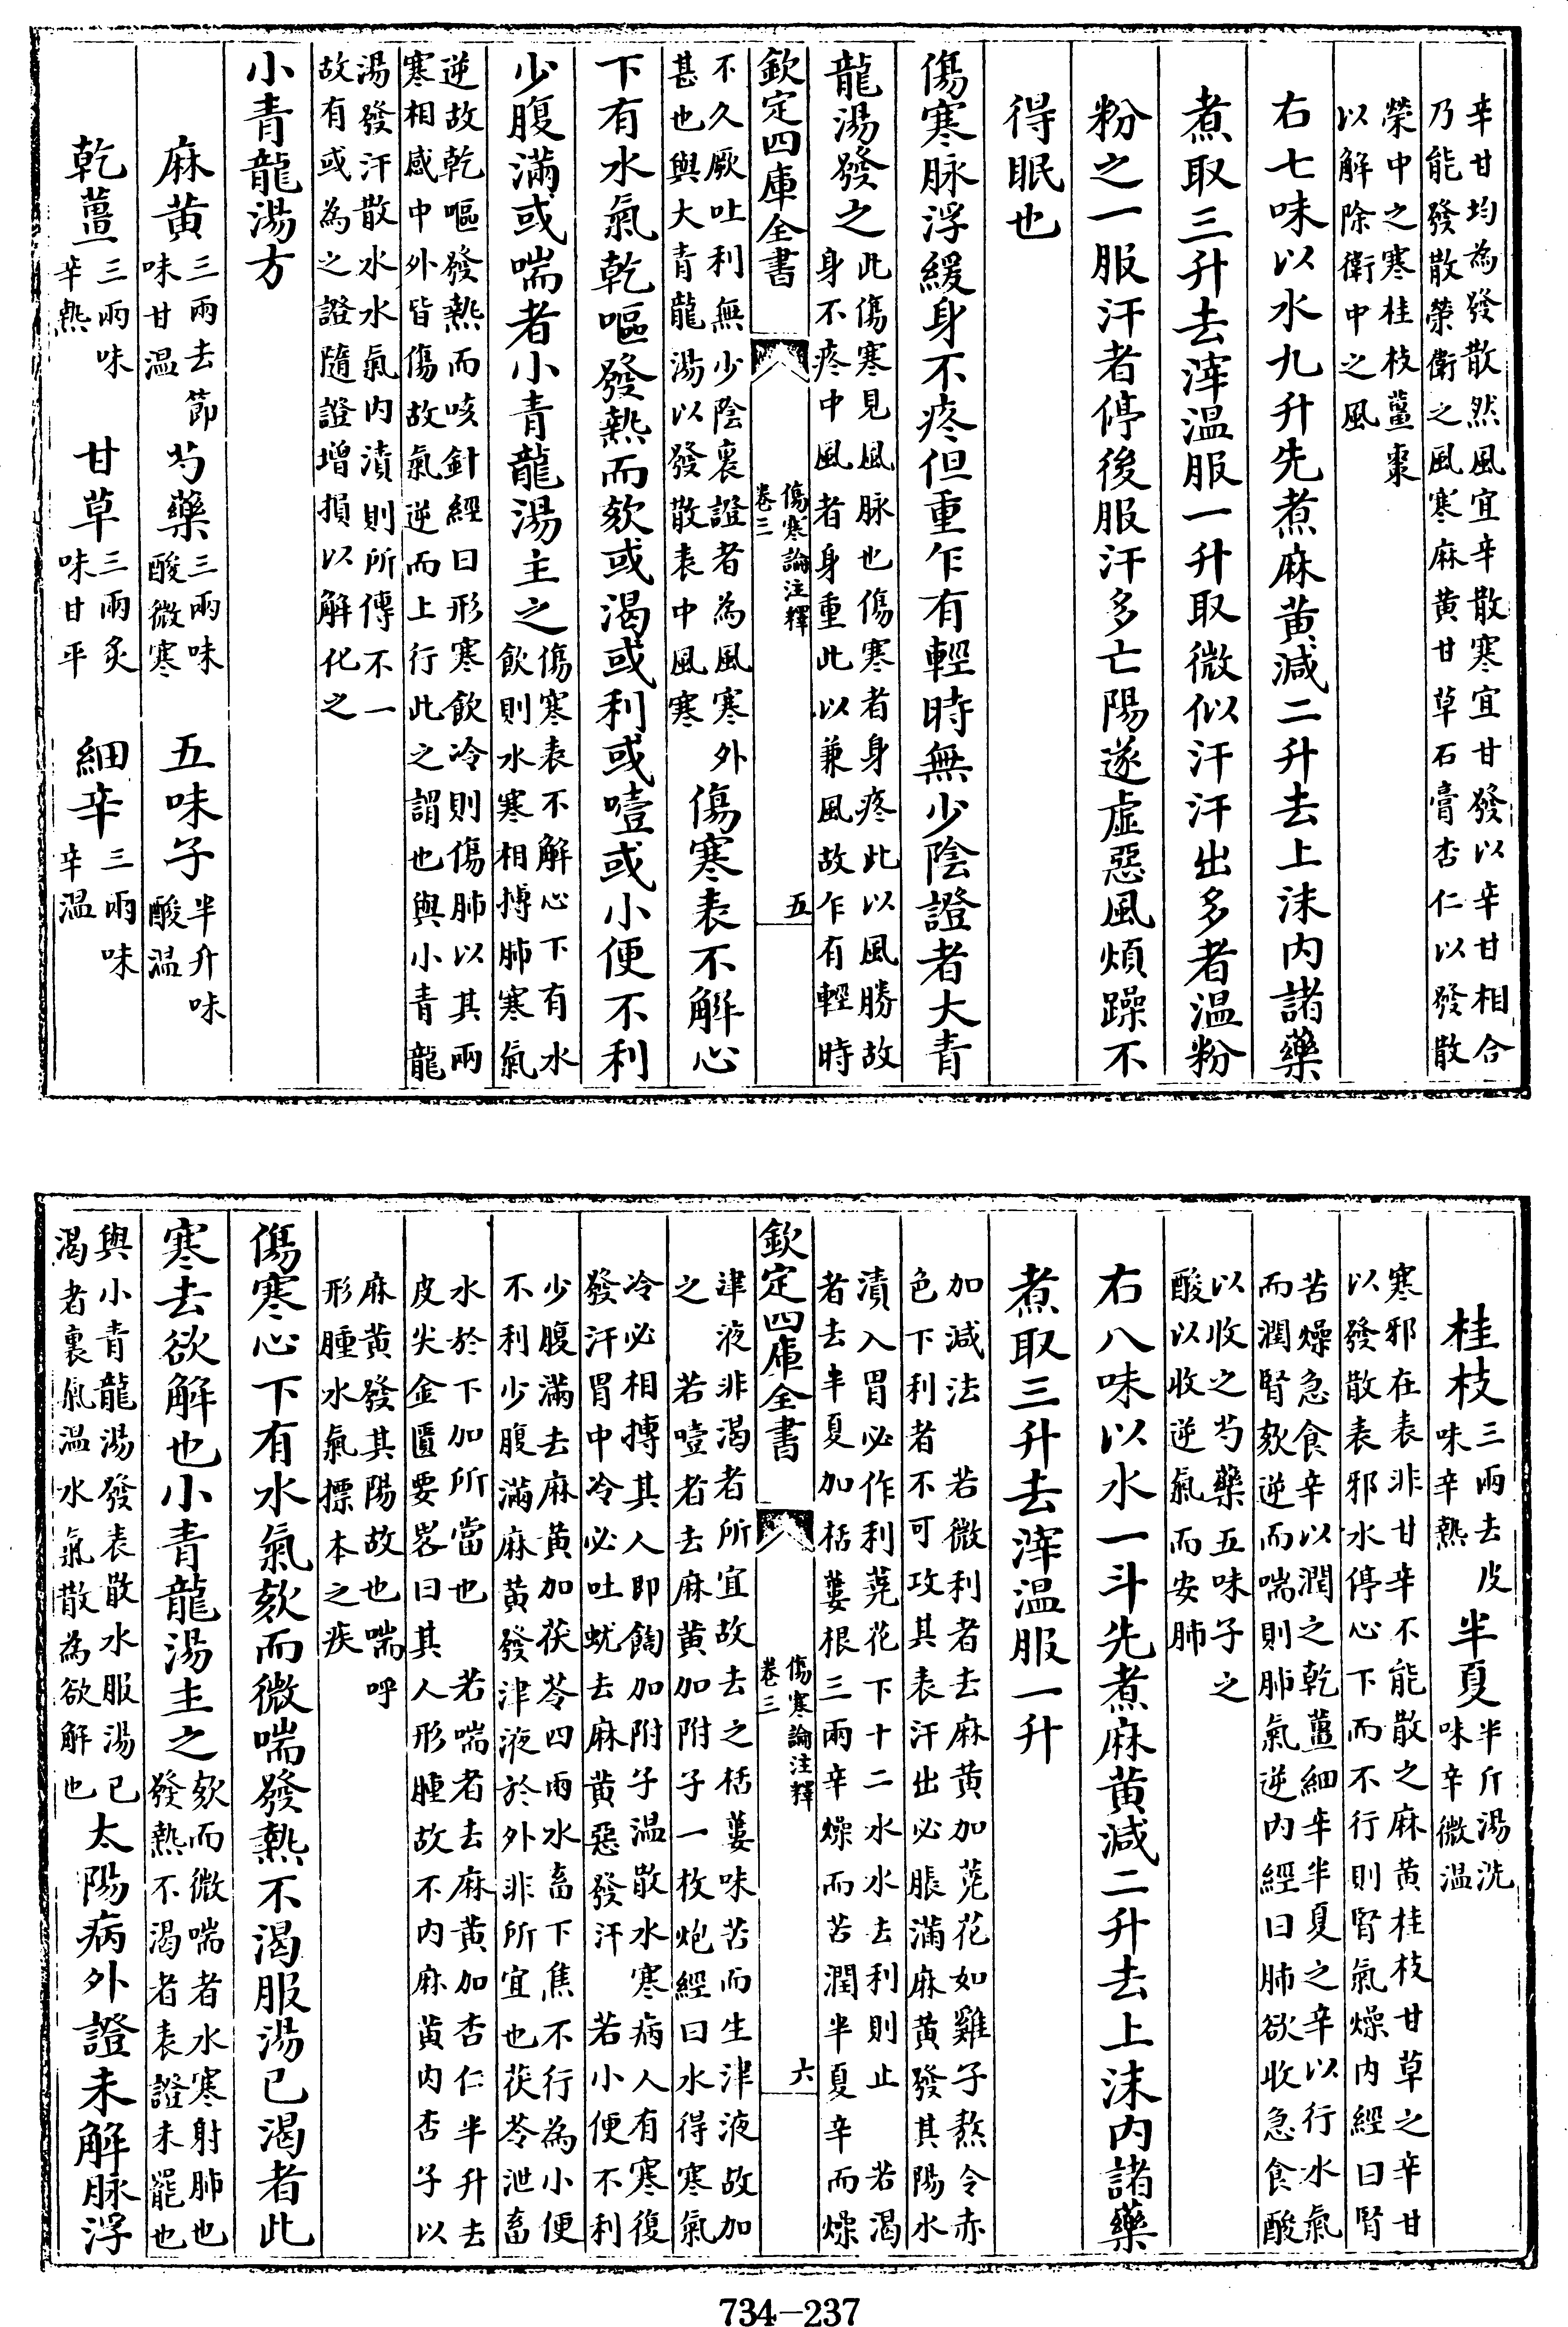 辛甘均為發散然風宜辛散寒宜甘發以辛甘相合
乃能發散榮衛之風寒麻黄甘草石膏杏仁以發散
榮中之寒桂枝薑棗
以解除衛中之風
右七味以水九升先煮麻黄減二升去上沫内諸藥
煮取三升去滓温服一升取微似汗汗出多者温粉
粉之一服汗者停後服汗多亡陽遂虚惡風煩躁不
得眠也
傷寒脉浮緩身不疼但重乍有輕時無少陰證者大青
龍湯發之
此傷寒見風脉也傷寒者身疼此以風勝故
身不疼中風者身重此以兼風故乍有輕時
欽定四庫全書
傷寒論注釋
卷三
五
不久厥吐利無少陰裏證者為風寒外
甚也與大青龍湯以發散表中風寒
傷寒表不解心
下有水氣乾嘔發熱而欬或渴或利或噎或小便不利
少腹滿或喘者小青龍湯主之
傷寒表不解心下有水
飲則水寒相搏肺寒氣
逆故乾嘔發熱而咳針經曰形寒飲冷則傷肺以其兩
寒相感中外皆傷故氣逆而上行此之謂也與小青龍
湯發汗散水水氣内漬則所傳不一
故有或為之證隨證增損以解化之
小青龍湯方
麻黄
三兩去節
味甘温
芍藥
三兩味
酸微寒
五味子
半升味
酸温
乾薑
三兩味
辛熱
甘草
三兩炙
味甘平
細辛
三兩味
辛温
桂枝
三兩去皮
味辛熱
半夏
半斤湯洗
味辛微温
寒邪在表非甘辛不能散之麻黄桂枝甘草之辛甘
以發散表邪水停心下而不行則腎氣燥内經曰腎
苦燥急食辛以潤之乾薑細辛半夏之辛以行水氣
而潤腎欬逆而喘則肺氣逆内經曰肺欲收急食酸
以收之芍藥五味子之
酸以收逆氣而安肺
右八味以水一斗先煮麻黄減二升去上沫内諸藥
煮取三升去滓温服一升
加減法　若微利者去麻黄加蕘花如雞子熬令赤
色下利者不可攻其表汗出必脹滿麻黄發其陽水
漬入胃必作利蕘花下十二水水去利則止　若渴
者去半夏加栝蔞根三兩辛燥而苦潤半夏辛而燥
欽定四庫全書
傷寒論注釋
卷三
六
津液非渴者所宜故去之栝蔞味苦而生津液故加
之　若噎者去麻黄加附子一枚炮經曰水得寒氣
冷必相搏其人即餲加附子温散水寒病人有寒復
發汗胃中冷必吐蚘去麻黄惡發汗　若小便不利
少腹滿去麻黄加茯苓四兩水畜下焦不行為小便
不利少腹滿麻黄發津液於外非所宜也茯苓泄畜
水於下加所當也　若喘者去麻黄加杏仁半升去
皮尖金匱要畧曰其人形腫故不内麻黄内杏子以
麻黄發其陽故也喘呼
形腫水氣摽本之疾
傷寒心下有水氣欬而微喘發熱不渴服湯已渴者此
寒去欲解也小青龍湯主之
欬而微喘者水寒射肺也
發熱不渴者表證未罷也
與小青龍湯發表散水服湯已
渴者裏氣温水氣散為欲解也
太陽病外證未解脉浮
734-237